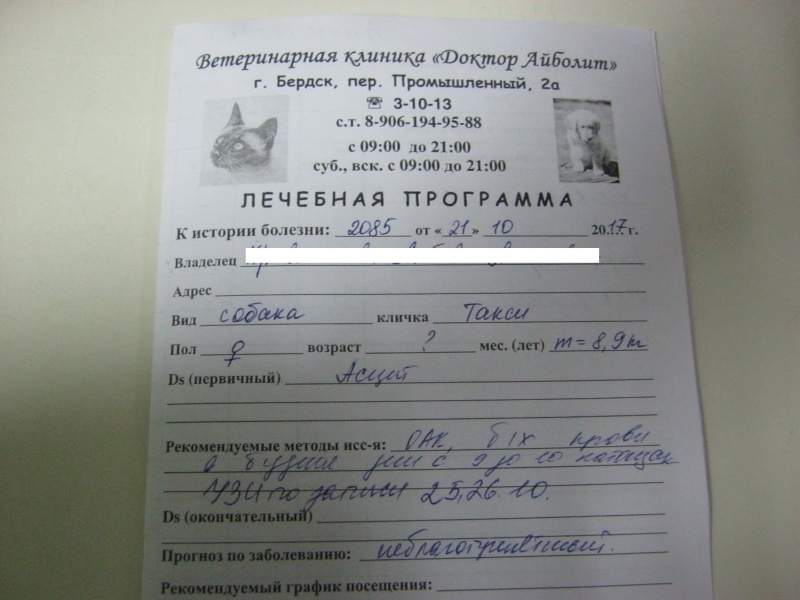 Ветеринарная клиника «Доктор Айболит»
г. Бердск, пер. Промышленный, 2а
☎ 3-10-13
с.т. 8-906-194-95-88
с 09:00 до 21:00
суб., вск. с 09:00 до 21:00
ЛЕЧЕБНАЯ ПРОГРАММА
К истории болезни: 2085 от «21» 10 2017 г.
Владелец
Адрес
Вид собака кличка Такси
Пол ♀ возраст ? мес. (лет) m = 8,9 кг
Ds (первичный) Асцит
Рекомендуемые методы исс-я: ОАК, б/х крови
в будние дни с 9 до 10 натощак
УЗИ по записи 25,26.10.
Ds (окончательный)
Прогноз по заболеванию: неблагоприятный.
Рекомендуемый график посещения: